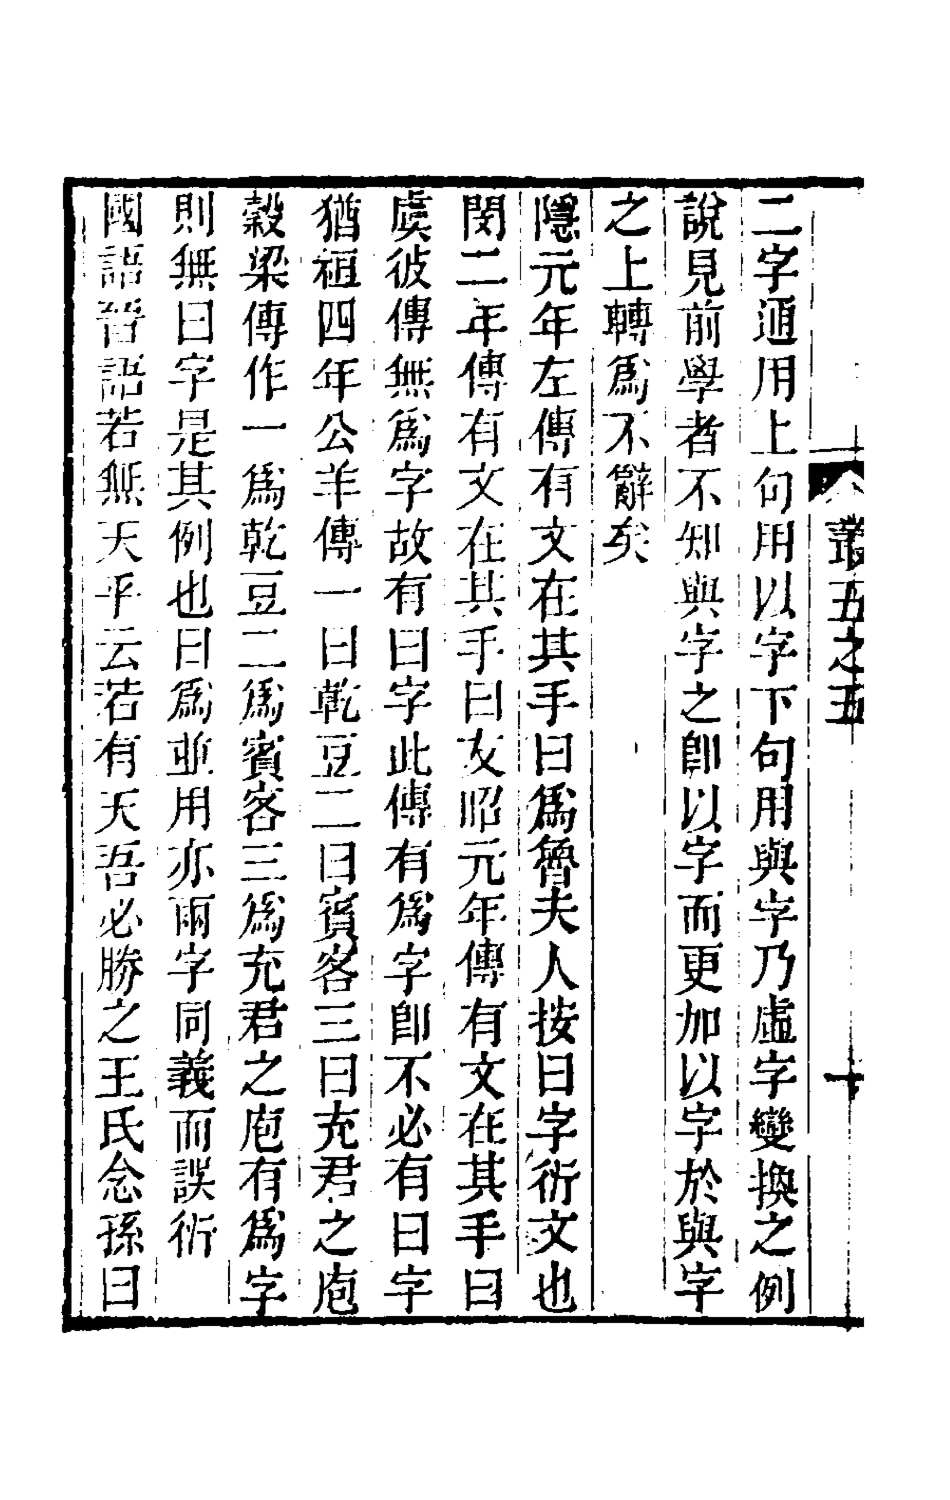 叢五之五
十
二字通用上句用以字下句用與字乃虛字變換之例
說見前學者不知與字之卽以字而更加以字於與字
之上轉爲不辭矣
隱元年左傳有文在其手曰爲魯夫人按曰字衍文也
閔二年傳有文在其手曰友昭元年傳有文在其手曰
虞彼傳無爲字故有曰字此傳有爲字卽不必有曰字
猶桓四年公羊傳一曰乾豆二曰賓客三曰充君之庖
穀梁傳作一爲乾豆二爲賓客三爲充君之庖有爲字
則無曰字是其例也曰爲並用亦兩字同義而誤衍
國語晉語若無天乎云若有天吾必勝之王氏念孫曰